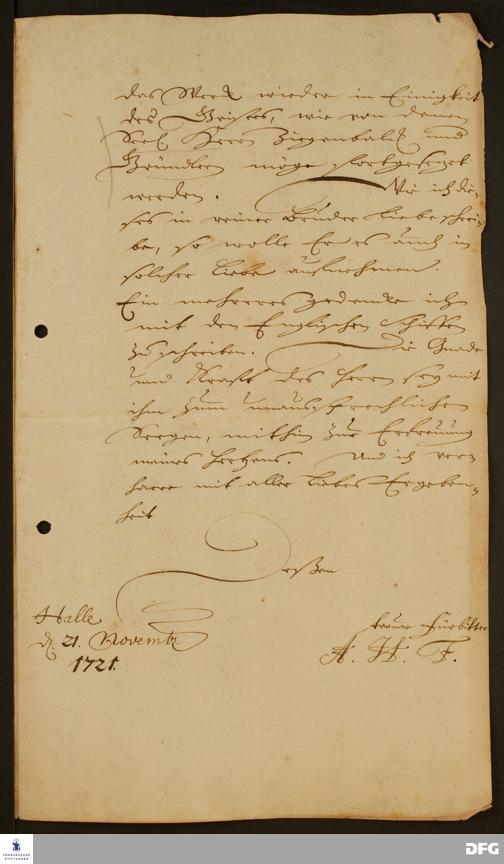 das Werck wieder in Einigkeit
des Geistes, wie von denen
Seel. Herrn Ziegenbalg und
Gründlern möge fortgesetzet
werden. Wie ich die-
ses in reiner Bruder Liebe schrei-
be, so wolle Er es auch in
solcher Liebe aufnehmen.
Ein mehreres gedencke ich
mit den Englischen Schiffen
zu schreiben. Die Gnade
und Krafft des Herrn sey mit
ihm zum unaussprechlichen
Seegen, mithin zur Erfreuung
meines Hertzens. Und ich ver-
harre mit aller Liebes Ergeben-
heit
Deßen
Halle
d. 21. Novembr.
1721.
treuer Fürbitter
A. H. F.
FRANCKESCHE
STIFTUNGEN
DFG